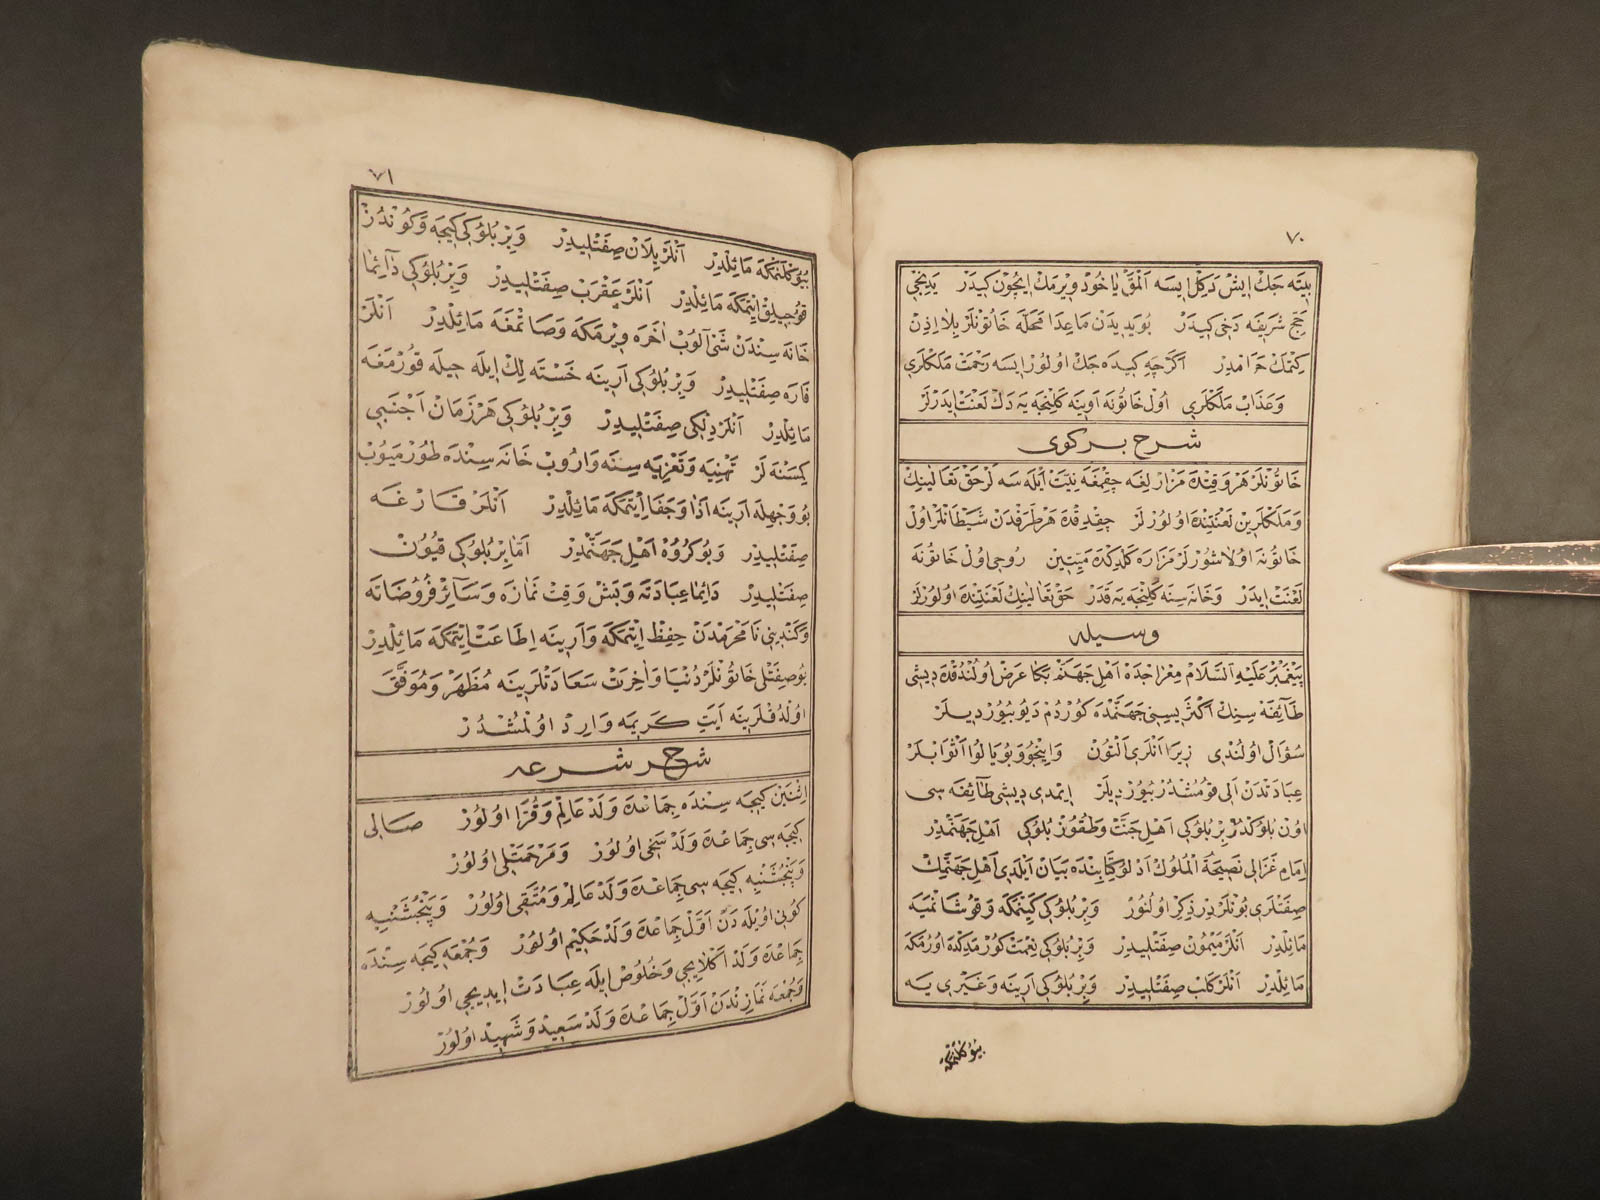 ٧٠
بيته جك ايش دكل ايسه المق ياخود ويرمك ايچون كيدر يدنجى
حج شريفه دخى كيدر بو يديدن ماعدا محله خاتونلر بلا اذن
كتمك حرامدر اكرچه كيده جك اولور ايسه رحمت ملكلرى
وعذاب ملكلرى اول خاتونه اوينه كلنجه يه دك لعنت ايدرلر
شرح بركوى
خاتونلر هر وقتده مزارلغه چقمغه نيت ايله سه لر حق تعالينك
وملكلرين لعنتنده اولورلر چقدقده هر طرفدن شيطانلر اول
خاتونه اولاشورلر مزاره كلدكده ميتين روحى اول خاتونه
لعنت ايدر وخانه سنه كلنجه يه قدر حق تعالينك لعنتنده اولورلر
وسيله
پيغمبر عليه السلام معراجده اهل جهنم بكا عرض اولندقده ديشى
طائفه سنك اكثريسينى جهنمده كوردم ديو بيورديلر
سؤال اولندى زيرا انلرى التون واينجو وبويالو اثوابلر
عبادتدن الى قومشدر بيورديلر ايمدى ديشى طائفه سى
اون بلوكدر بر بلوكى اهل جنت وطقوز بلوكى اهل جهنمدر
امام غزالى نصيحة الملوك ادلو كتابنده بيان ايلدى اهل جهنمك
صفتلرى بونلردر ذكر اولنور وبر بلوكى كينمكه وقوشانميه
مائلدر انلر ميمون صفتليدر وبر بلوكى نعمت كورمدكده اورمكه
مائلدر انلر كلب صفتليدر وبر بلوكى ارينه وغيرى يه
بيوكلنمكه
٧١
بيوكلنمكه مائلدر انلر يلان صفتليدر وبر بلوكى كيجه وكوندز
قوجيلق ايتمكه مائلدر انلر عقرب صفتليدر وبر بلوكى دائما
خانه سندن شئ آلوب اخره ويرمكه وصاتمغه مائلدر انلر
فاره صفتليدر وبر بلوكى ارينه خسته لك ايله حيله قورمغه
مائلدر انلر دلكى صفتليدر وبر بلوكى هر زمان اجنبى
كمسنه لر تهنيه وتعزيه سنه واروب خانه سنده طورميوب
بو وجهله ارينه اذا وجفا ايتمكه مائلدر انلر قارغه
صفتليدر وبو كروه اهل جهنمدر اما بر بلوكى قيون
صفتليدر دائما عبادته وبش وقت نمازه وسائر فروضاته
وكندينى نامحرمدن حفظ ايتمكه وارينه اطاعت ايتمكه مائلدر
بو صفتلى خاتونلر دنيا واخرت سعادتلرينه مظهر وموفق
اولدقلرينه ايت كريمه وارد اولمشدر
شرح شرعه
اثنين كيجه سنده جماعده ولد عالم وقرا اولور صالى
كيجه سى جماعده ولد سخى اولور ومرحمتلى اولور
وپنجشنبه كيجه سى جماعده ولد عالم ومتقى اولور وپنجشنبه
كونى اويله دن اول جماعده ولد حكيم اولور وجمعه كيجه سنده
جماعده ولد اكلايجى وخلوص ايله عبادت ايديجى اولور
وجمعه نمازندن اول جماعده ولد سعيد وشهيد اولور